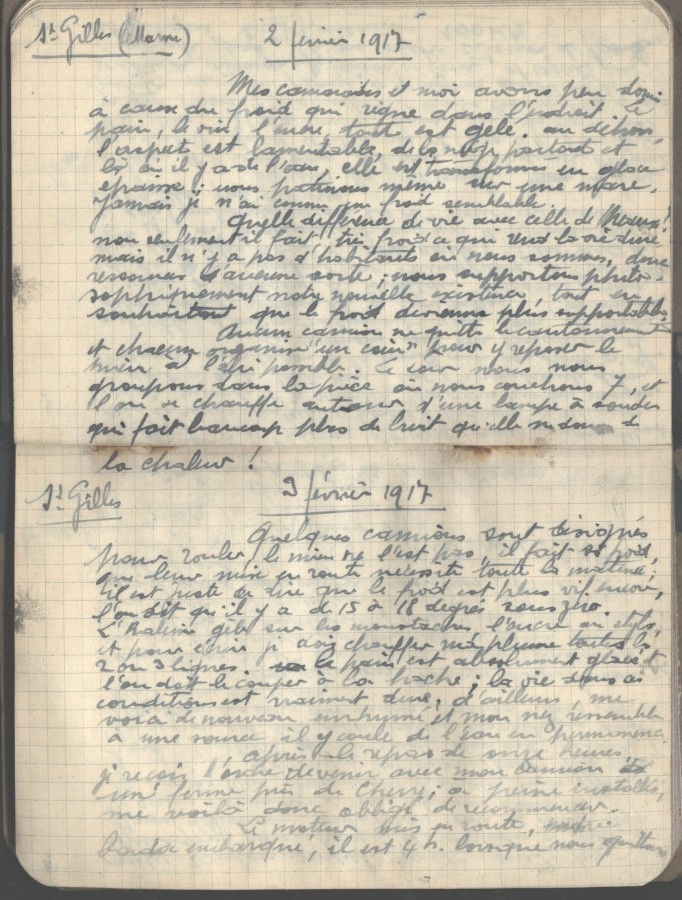 St Gilles (Marne) 2 février 1917
Mes camarades et moi avons peu dormi
à cause du froid qui règne dans l'endroit le
pain, le vin, l'encre, tout est gelé. au dehors,
l'aspect est lamentable, de la neige partout et
là où il y a de l'eau, elle est transformée en glace
épaisse ; nous patinons même sur une mare.
Jamais je n'ai connu un froid semblable.
Quelle différence de vie avec celle de Meaux !
non seulement il fait très froid ce qui rend la vie dure
mais il n'y a pas d'habitants où nous sommes, donc
ressources d'aucune sorte ; nous supportons philo-
sophiquement notre nouvelle existence, tout en
souhaitant que le froid devienne plus supportable.
Aucun camion ne quitte le cantonnement
et chacun organise "un coin" pour y reposer le
mieux à l'abri possible. Ce soir nous nous
groupons dans la pièce où nous couchons 7, et
l'on se chauffe autour d'une lampe à souder
qui fait beaucoup plus de bruit qu'elle ne donne de
la chaleur !
St Gilles 3 février 1917
Quelques camions sont désignés
pour rouler, le mien ne l'est pas, il fait si froid,
que leur mise en route nécessite toute la matinée ;
il est juste de dire que le froid est plus vif encore,
l'on dit qu'il y a de 15 à 18 degrés sous zéro.
L'haleine gèle sur les moustaches l'encre au stylo,
et pour écrire je dois chauffer ma plume toutes les
2 ou 3 lignes. le pain est absolument glacé et
l'on doit le couper à la hache ; la vie dans ces
conditions est vraiment dure, d'ailleurs, me
voici de nouveau enrhumé et mon nez ressemble
à une source il y coule de l'eau en permanence
après le repas de onze heures
je reçois l'ordre de venir avec mon camion
une ferme près de Chery ; à peine installés,
me voilà donc obligé de recommencer.
Le moteur mis en route,
embarqué, il est 4 h. lorsque nous quittons